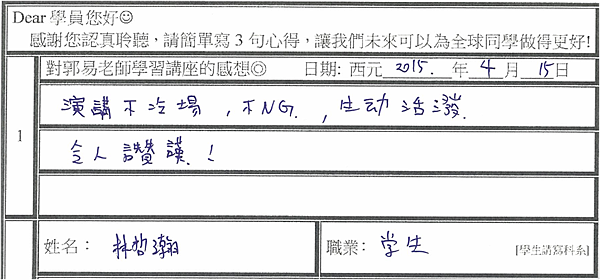 Dear 學員您好☺
感謝您認真聆聽，請簡單寫 3 句心得，讓我們未來可以為全球同學做得更好!
對郭易老師學習講座的感想◎ 日期: 西元 2015. 年 4 月 15 日
1
演講不冷場，不NG.，生动活潑.
令人讚謨.！
姓名： 林哲瀚 職業: 学生 [學生請寫科系]